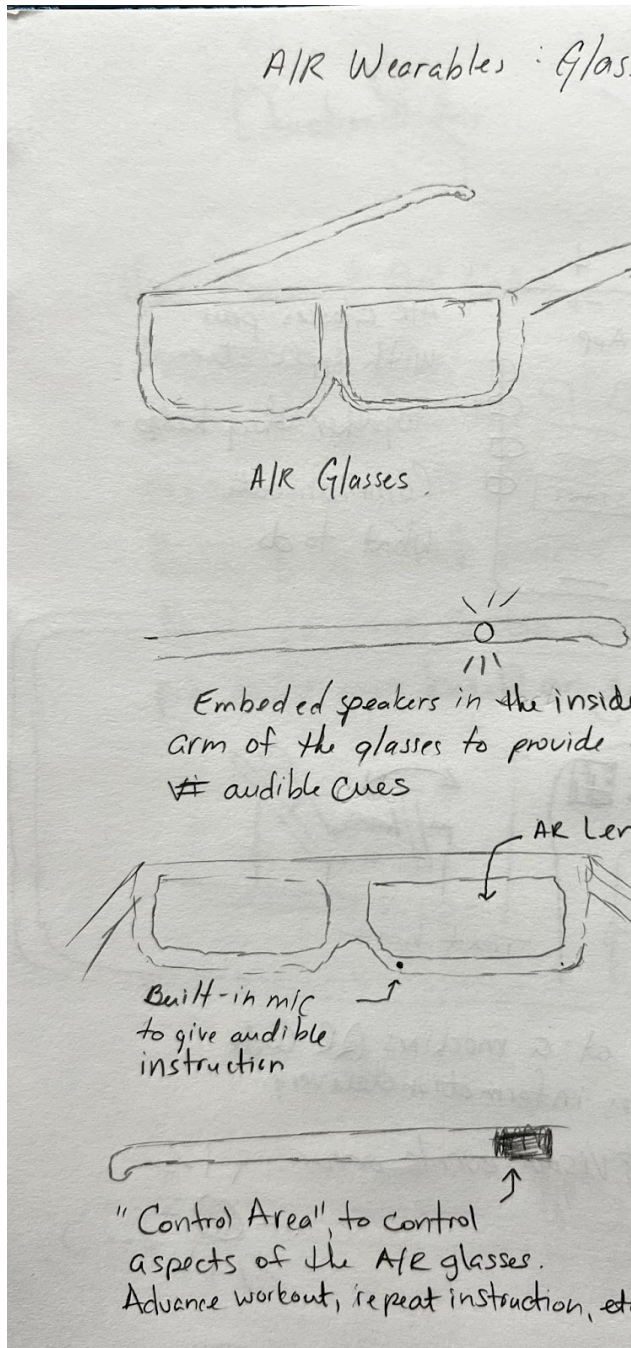 A/R Wearables : Glas
A/R Glasses.
Embeded speakers in the insid
arm of the glasses to provide
audible cues
AR Len
Built-in mic
to give audible
instruction
"Control Area", to control
aspects of the A/R glasses.
Advance workout, repeat instruction, et